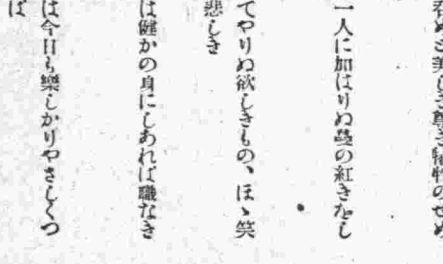 君めさ美しき尊き宿物のため
一人に加はりぬ蕋の紅きをし
てやりぬ欲しきもの、ほゝ笑
悲しき
は健かの身にしあれば職なき
は今日も樂しかりやさしくつ
ば